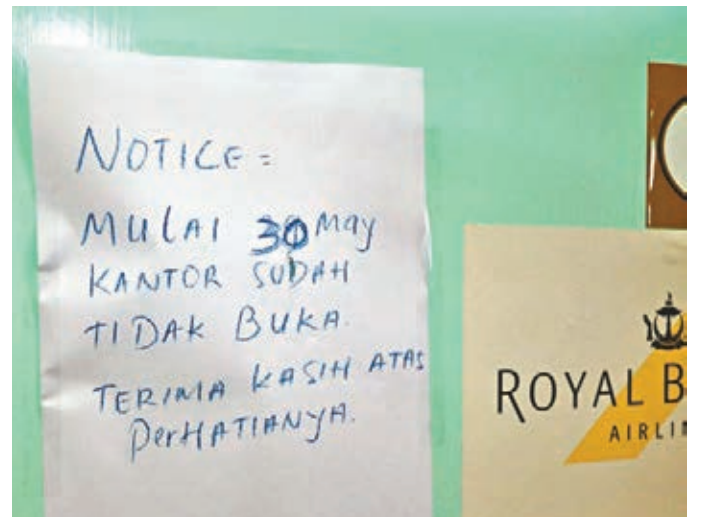 NOTICE =
MULAI 30 May
KANTOR SUDAH
TIDAK BUKA.
TERIMA KASIH ATAS
PerHATIANYA.
ROYAL B
AIRLI